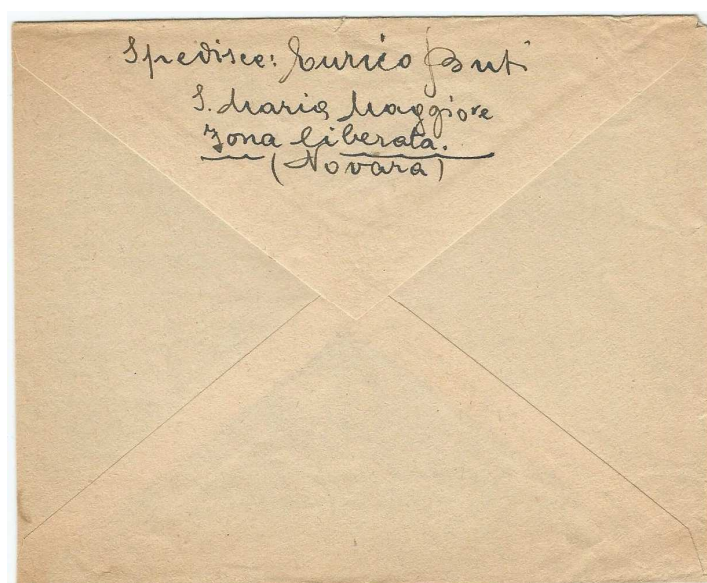 Spedisce: Enrico Buti
S. Maria Maggiore
Zona liberata.
(Novara)